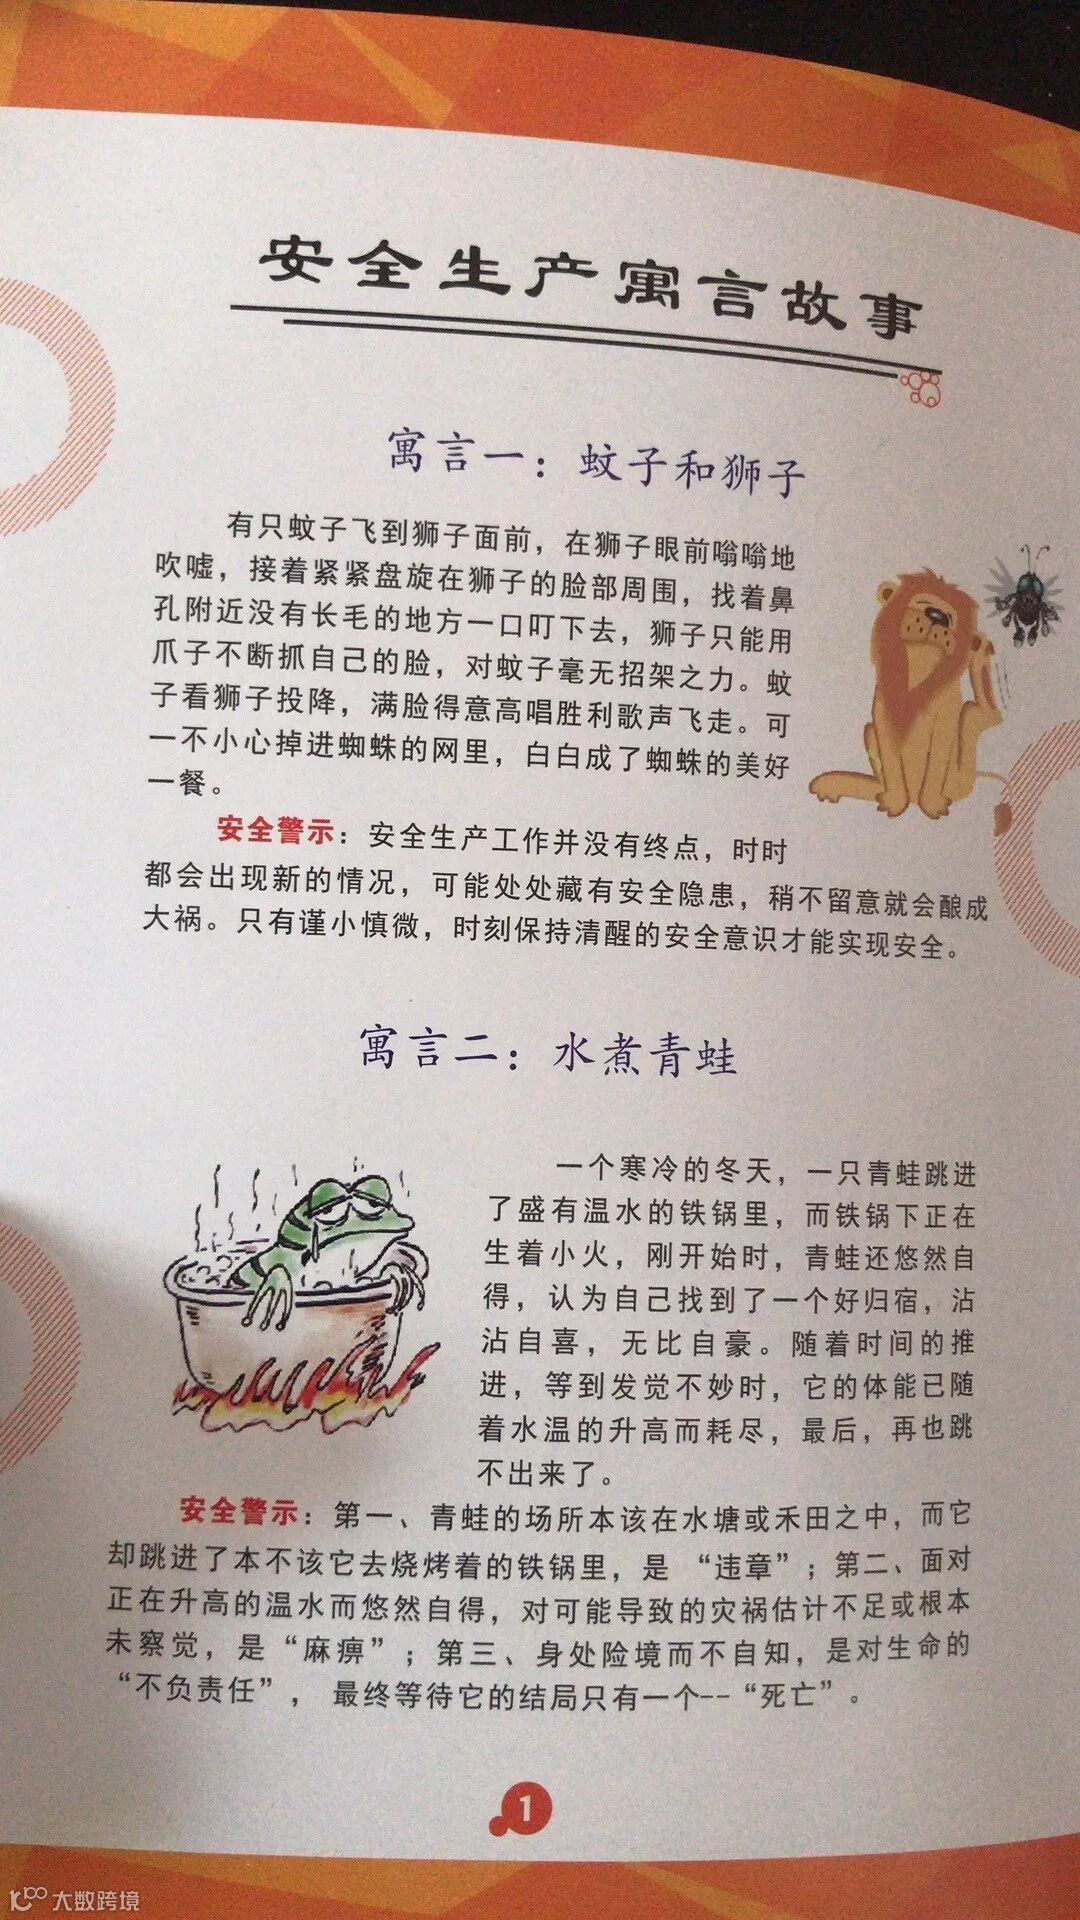 安全生产寓言故事
寓言一：蚊子和狮子
有只蚊子飞到狮子面前，在狮子眼前嗡嗡地
吹嘘，接着紧紧盘旋在狮子的脸部周围，找着鼻
孔附近没有长毛的地方一口叮下去，狮子只能用
爪子不断抓自己的脸，对蚊子毫无招架之力。蚊
子看狮子投降，满脸得意高唱胜利歌声飞走。可
一不小心掉进蜘蛛的网里，白白成了蜘蛛的美好
一餐。
安全警示：安全生产工作并没有终点，时时
都会出现新的情况，可能处处藏有安全隐患，稍不留意就会酿成
大祸。只有谨小慎微，时刻保持清醒的安全意识才能实现安全。
寓言二：水煮青蛙
一个寒冷的冬天，一只青蛙跳进
了盛有温水的铁锅里，而铁锅下正在
生着小火，刚开始时，青蛙还悠然自
得，认为自己找到了一个好归宿，沾
沾自喜，无比自豪。随着时间的推
进，等到发觉不妙时，它的体能已随
着水温的升高而耗尽，最后，再也跳
不出来了。
安全警示：第一、青蛙的场所本该在水塘或禾田之中，而它
却跳进了本不该它去烧烤着的铁锅里，是 “违章”；第二、面对
正在升高的温水而悠然自得，对可能导致的灾祸估计不足或根本
未察觉，是“麻痹”；第三、身处险境而不自知，是对生命的
“不负责任”， 最终等待它的结局只有一个--“死亡”。
1
大数跨境